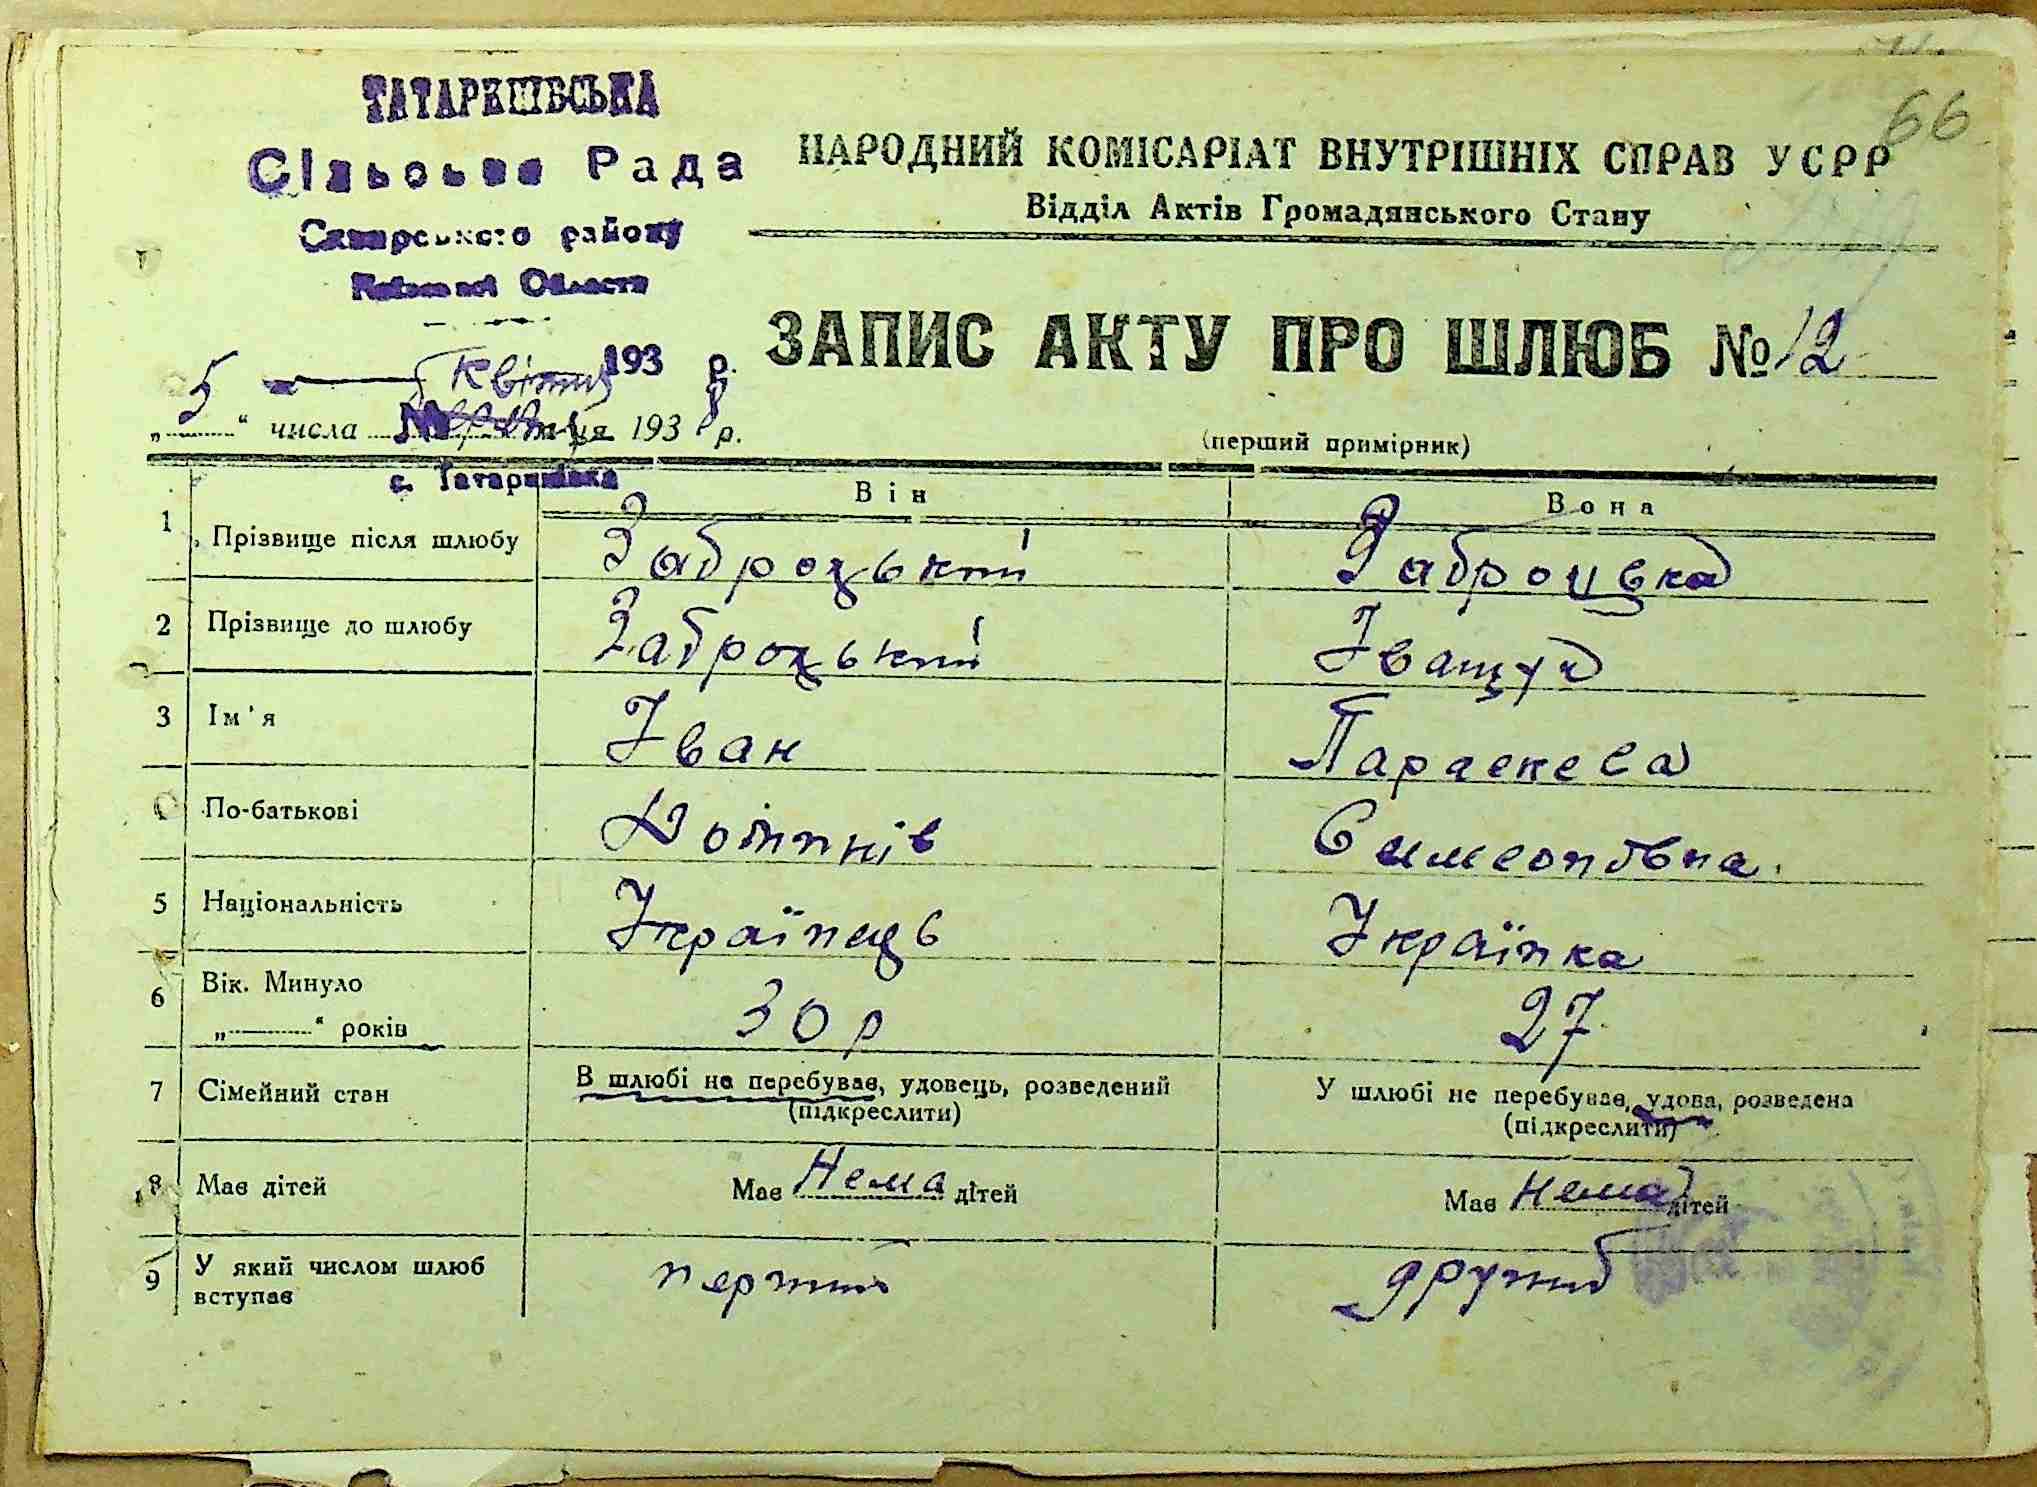 66
ТАТАРИНІВСЬКА
Сільська Рада
району
Області
НАРОДНИЙ КОМІСАРІАТ ВНУТРІШНІХ СПРАВ УСРР
Відділ Актів Громадянського Стану
ЗАПИС АКТУ ПРО ШЛЮБ № 12
193 р.
„5“ числа квітня 1938 р.
(перший примірник)
с. Татаринівка
Він Вона
1 Прізвище після шлюбу Заброцький Заброцька
2 Прізвище до шлюбу Заброцький Іващук
3 Ім'я Іван Параскева
По-батькові Симеонівна
5 Національність Українець Українка
6 Вік. Минуло
„ “ років 30 р 27
7 Сімейний стан В шлюбі не перебував, удовець, розведений У шлюбі не перебував, удова, розведена
(підкреслити) (підкреслити)
8 Має дітей Має Нема дітей Має Нема дітей
9 У який числом шлюб
вступає перший другий